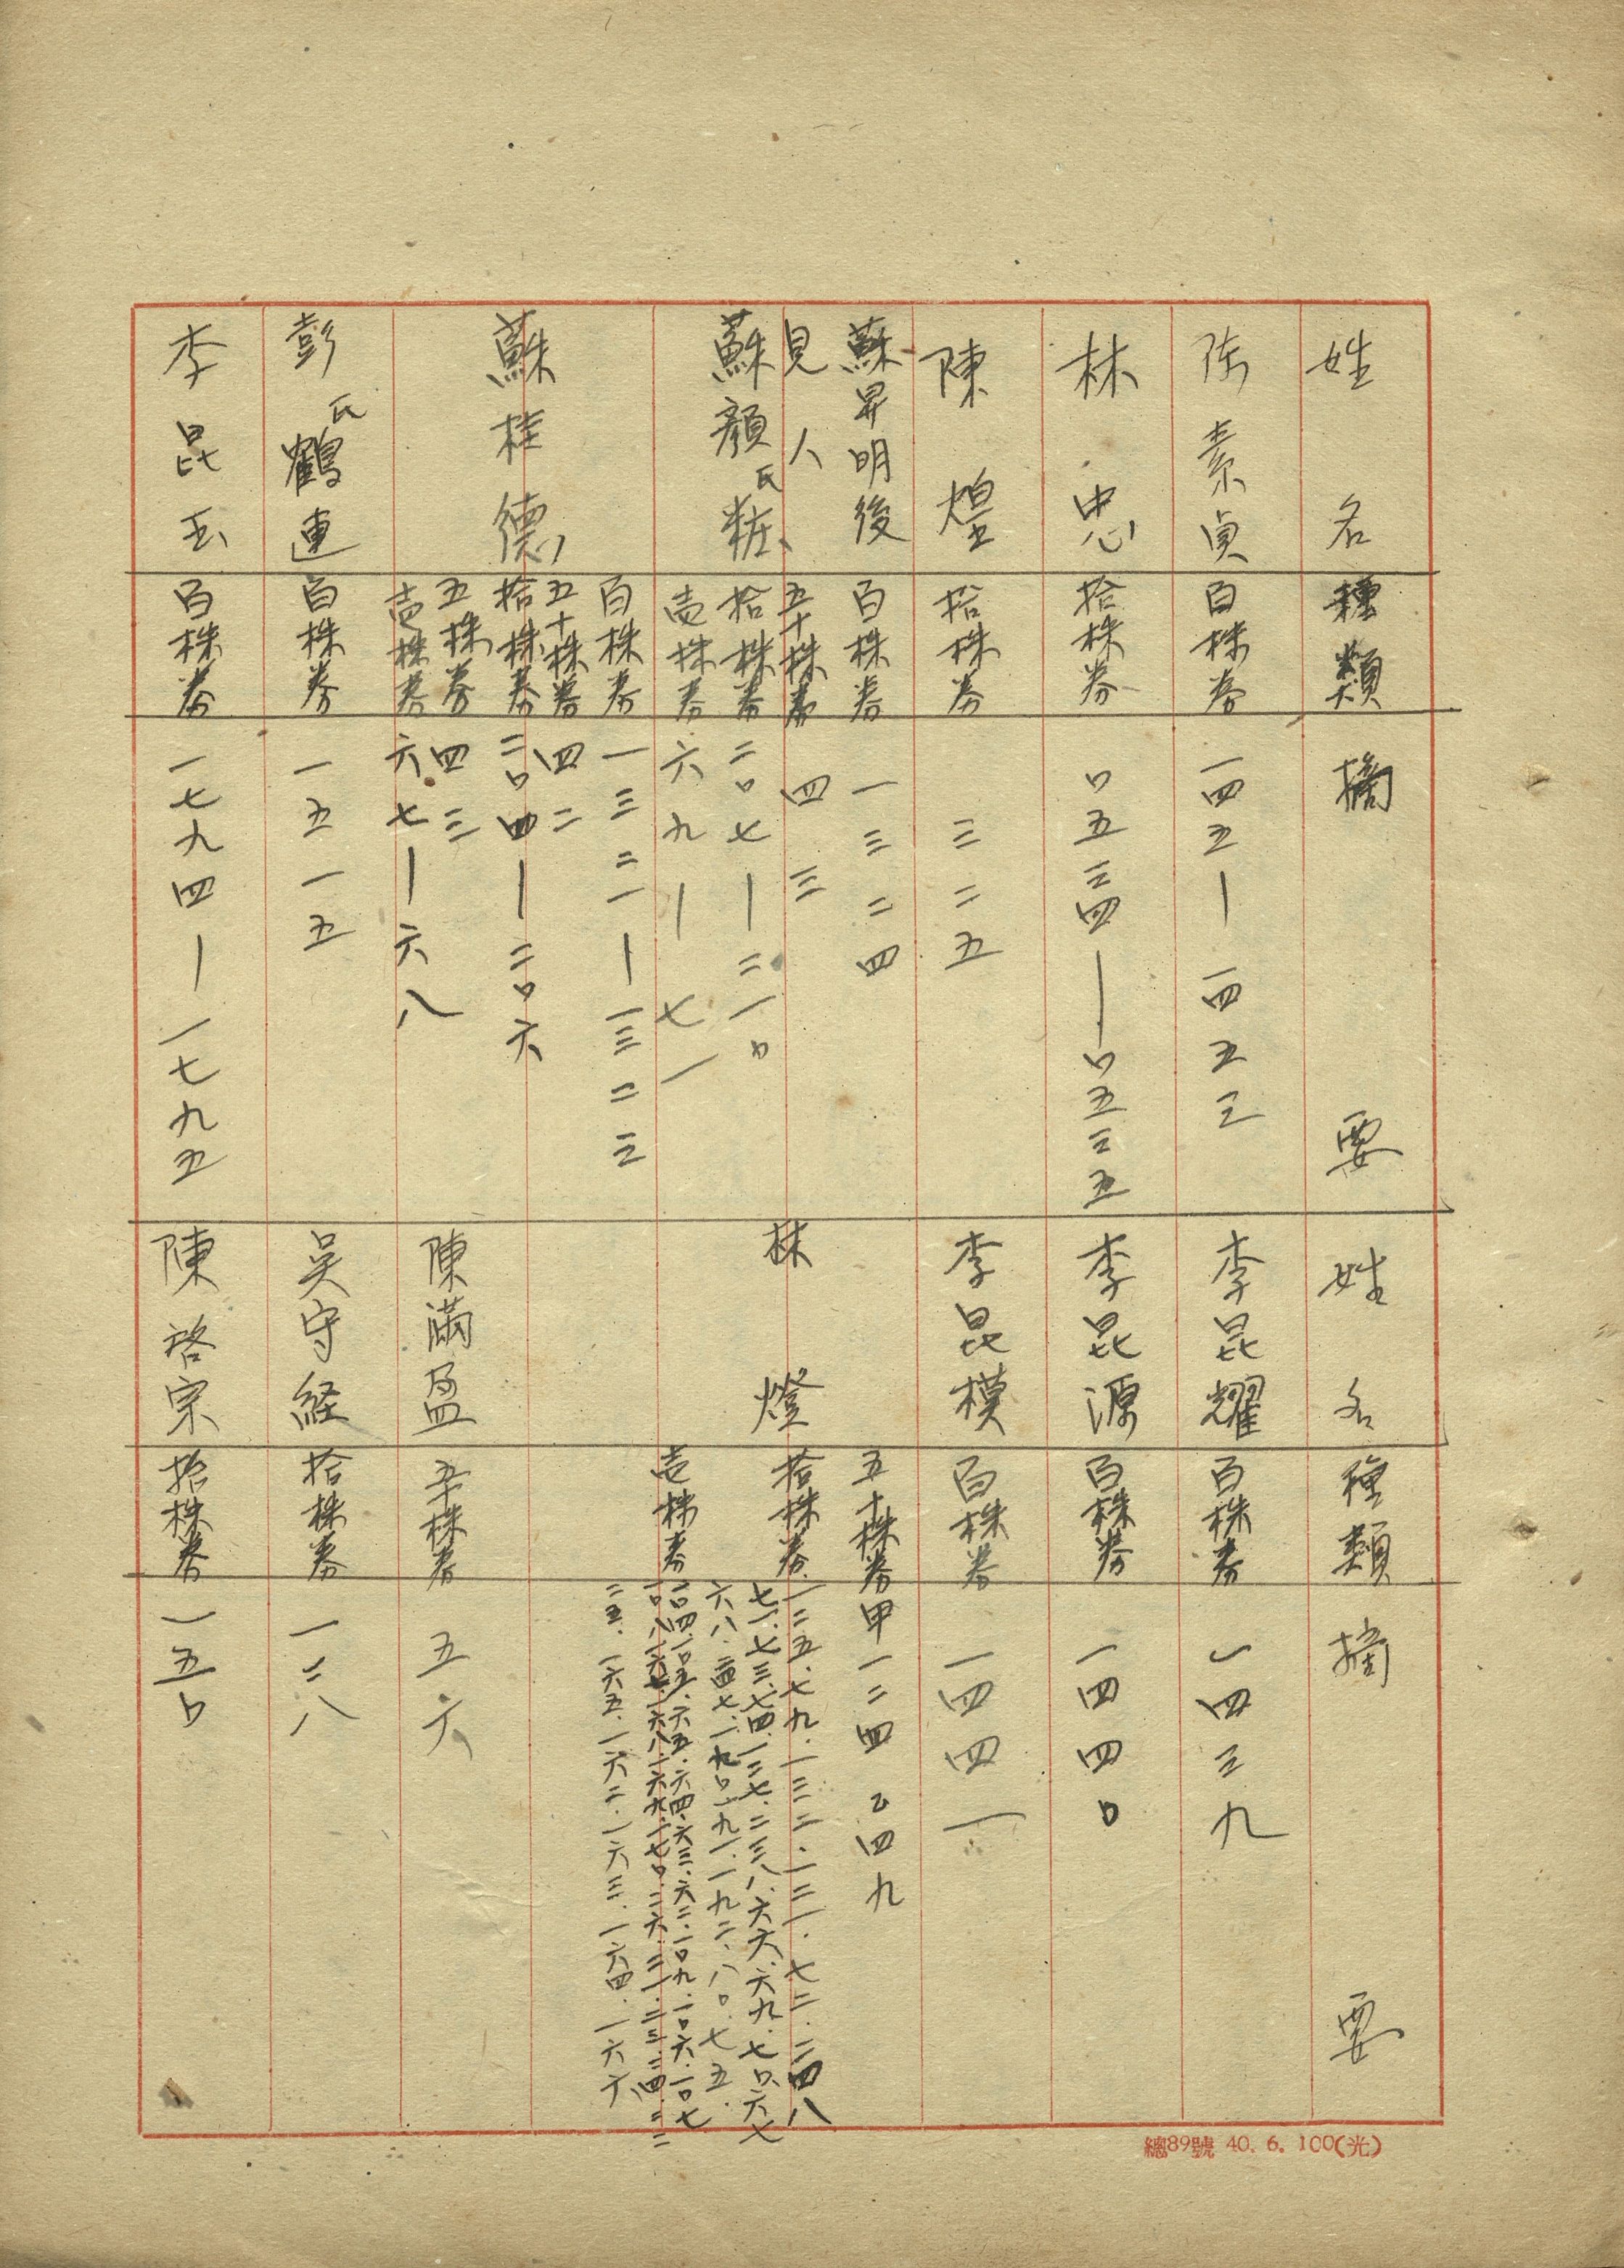 姓名 種類 摘要
陈素貞 百株券 一四五一—一四五三
林忠 拾株券 口五三四—口五三五
陳煌 拾株券 三二五
蘇昇明後見人 百株券 一三二四
五十株券 四三
蘇顏氏粧 拾株券 二口七—二一口
壱株券 六九—七一
蘇桂德 百株券 一三二一—一三二三
五十株券 四二
拾株券 二口四—二口六
五株券 四三
壱株券 六七—六八
彭氏鶴連 百株券 一五一五
李昆玉 百株券 一七九四—一七九五
姓名 種類 摘要
李昆耀 百株券 一四三九
李昆源 百株券 一四四口
李昆模 百株券 一四四一
林燈 五十株券 甲一二四 乙四九
拾株券 一二五.七九.一三二.一三一.七二.二四八
七一.七三.七四.一三七.二三八.六六.六九.七口.六七
六八.二四七.一九口.一九一.一九二.八口.七五.
壱株券 一口四.一口五.六五.六四.六三.六二.一口九.一口六.一口七
一口八.一六七.一六八.一六九.一七口.二六.三一.三三.三四.三二
三五.一六五.一六二.一六三.一六四.一六六
陳滿盈 五十株券 五六
吳守経 拾株券 一三八
陳啓宗 拾株券 一五口
總89號 40.6.100(光)